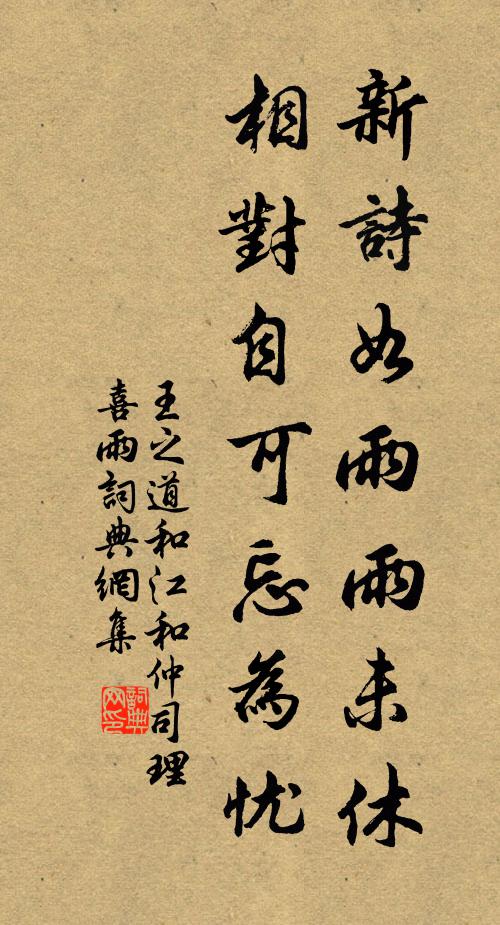 新詩如雨雨未休
相對自可忘為忧
王之道和江和仲司理
喜雨詞典網集
詞典
网印